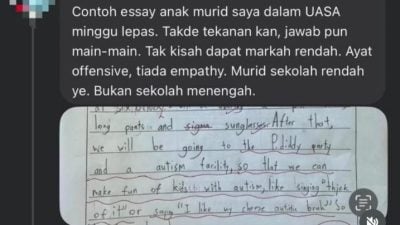 Contoh essay anak murid saya dalam UASA
minggu lepas. Takde tekanan kan, jawab pun
main-main. Tak kisah dapat markah rendah. Ayat
offensive, tiada empathy. Murid sekolah rendah
ye. Bukan sekolah menengah.
long pants and sigma sunglasses. After that,
we will be going to the P.diddy party
and a autism facility, so that we can
make fun of kids with autism, like singing "thick
of it" or say "I like my cheese autistic bruh" So